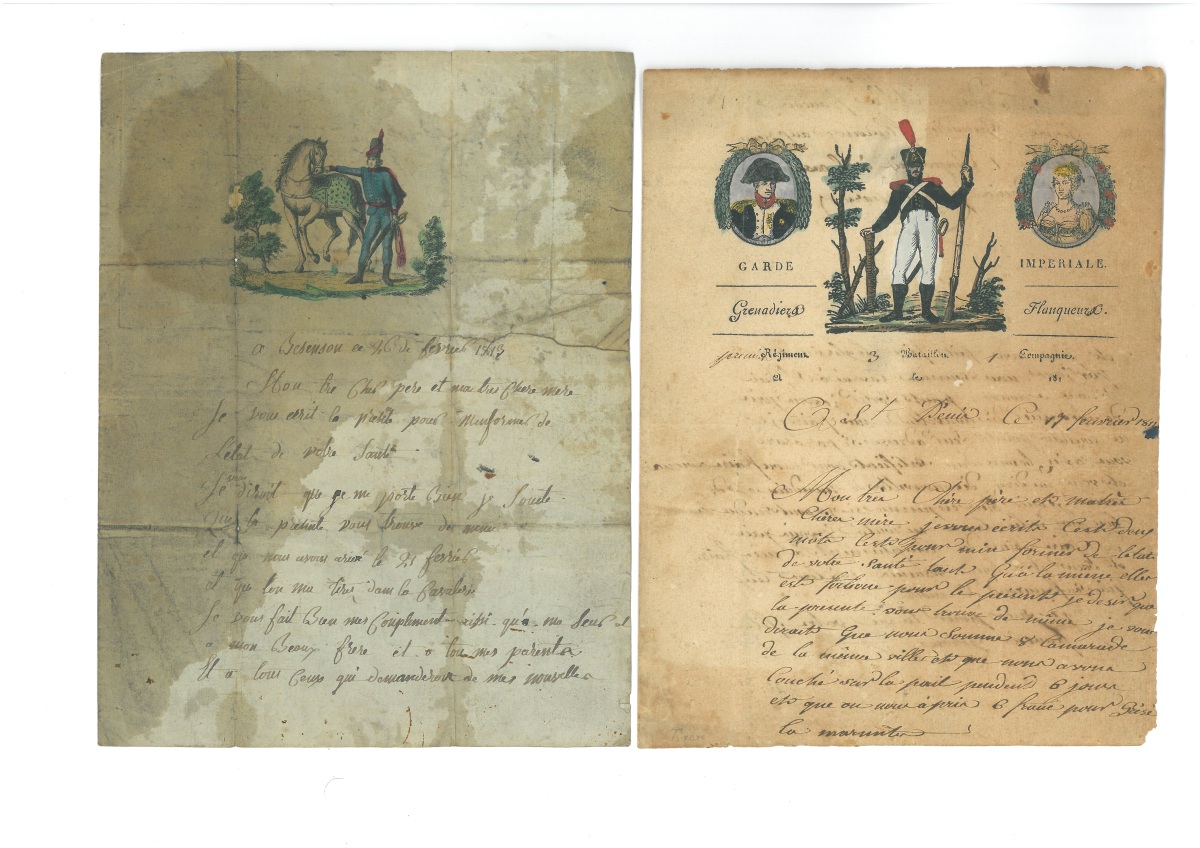 a Besenson ce 26 de fevrié 1813
Mon tre Cher pere et ma tres Chere mere
Je vous ecrit la pres[en]te pour m'enformer de
Letat de votre Santé
Je vous diroit que je me porte Bien je Souite
que la presente vous trouve de meme
et que nous avons arivé le 21 fevrié
et que lon ma tires dans la Cavalerie
Je vous fait Bien mes Compliment aissi qu'a ma Seur et
a mon Beaux frere et a tou mes parents
Il a tous Ceux qui demanderon de mes nouvelles
GARDE IMPERIALE.
Grenadiers Flanqueurs.
Régiment 3 Bataillon 1 Compagnie
A le 181
A St Denis Ce 17 fevrier
Mon tres Chère père et ma tres
Chère mere je vous écrits Cest deux
môts Cest pour min former de létat
de votre santé tant Qu'a la miene elle
est fortbone pour le présent je desir que
la presente vous trouve de même je vous
dirait Que nous somme camarade
de la même ville et que nous avons
Couché sur la pail pendent 6 jours
et que on nous à pris 6 franc pour
la marmite